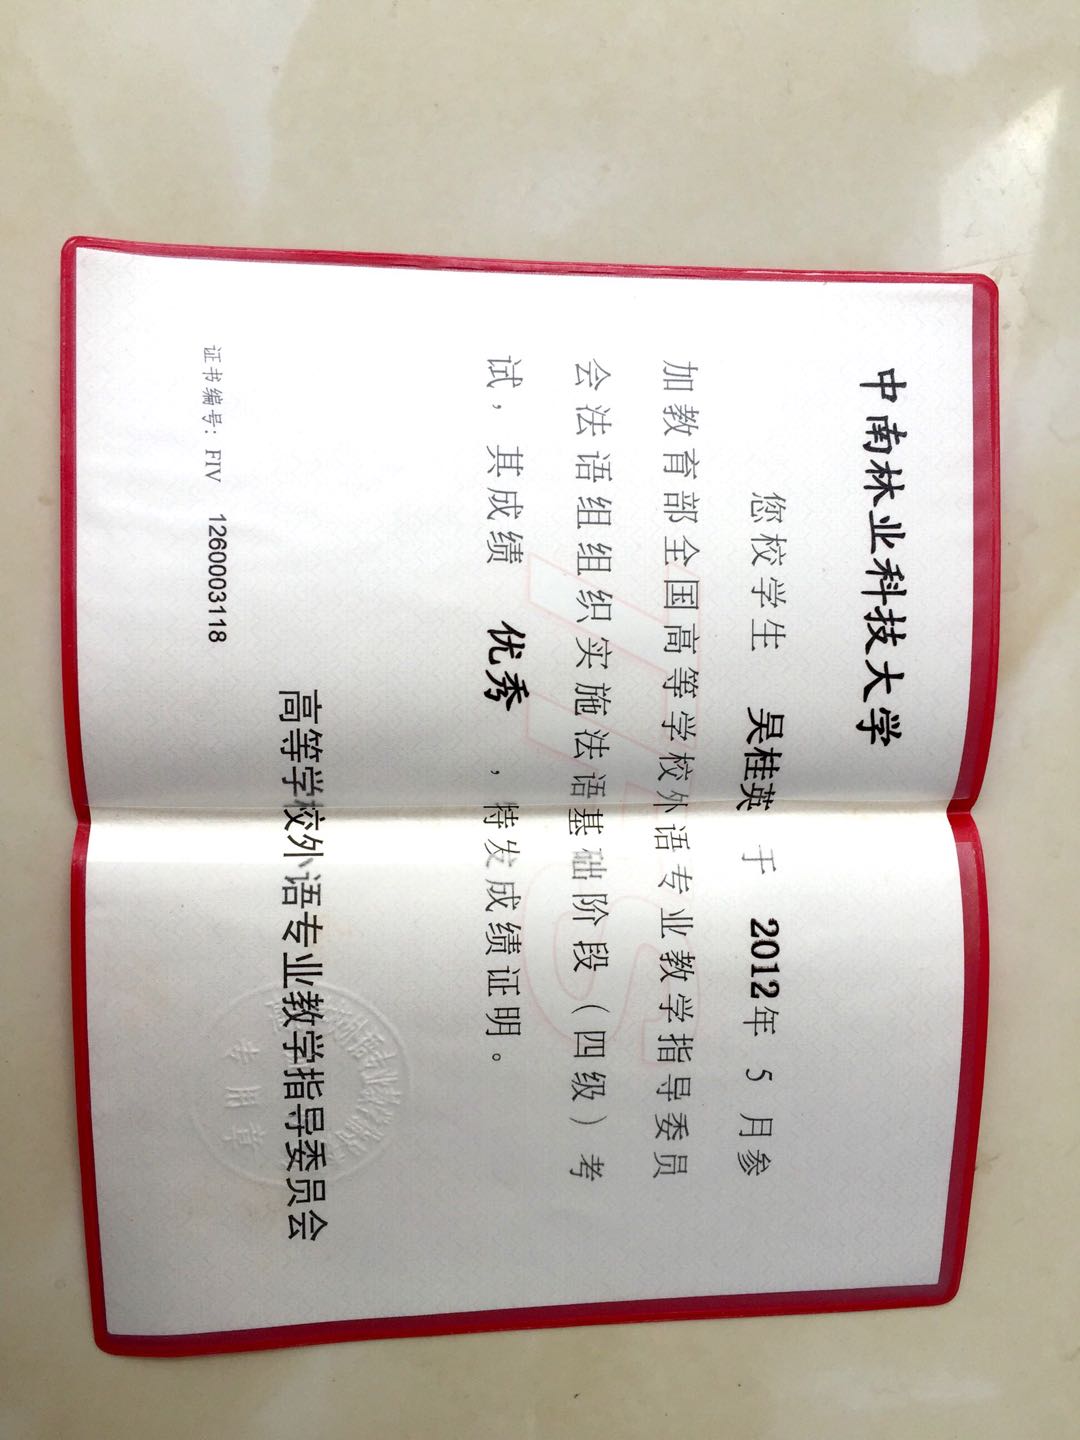 中南林业科技大学
您校学生 吴桂英 于 2012年 5 月参
加教育部全国高等学校外语专业教学指导委员
会法语组组织实施法语基础阶段（四级）考
试，其成绩 优秀 ，特发成绩证明。
高等学校外语专业教学指导委员会
证书编号：FIV 1260003118
专用章